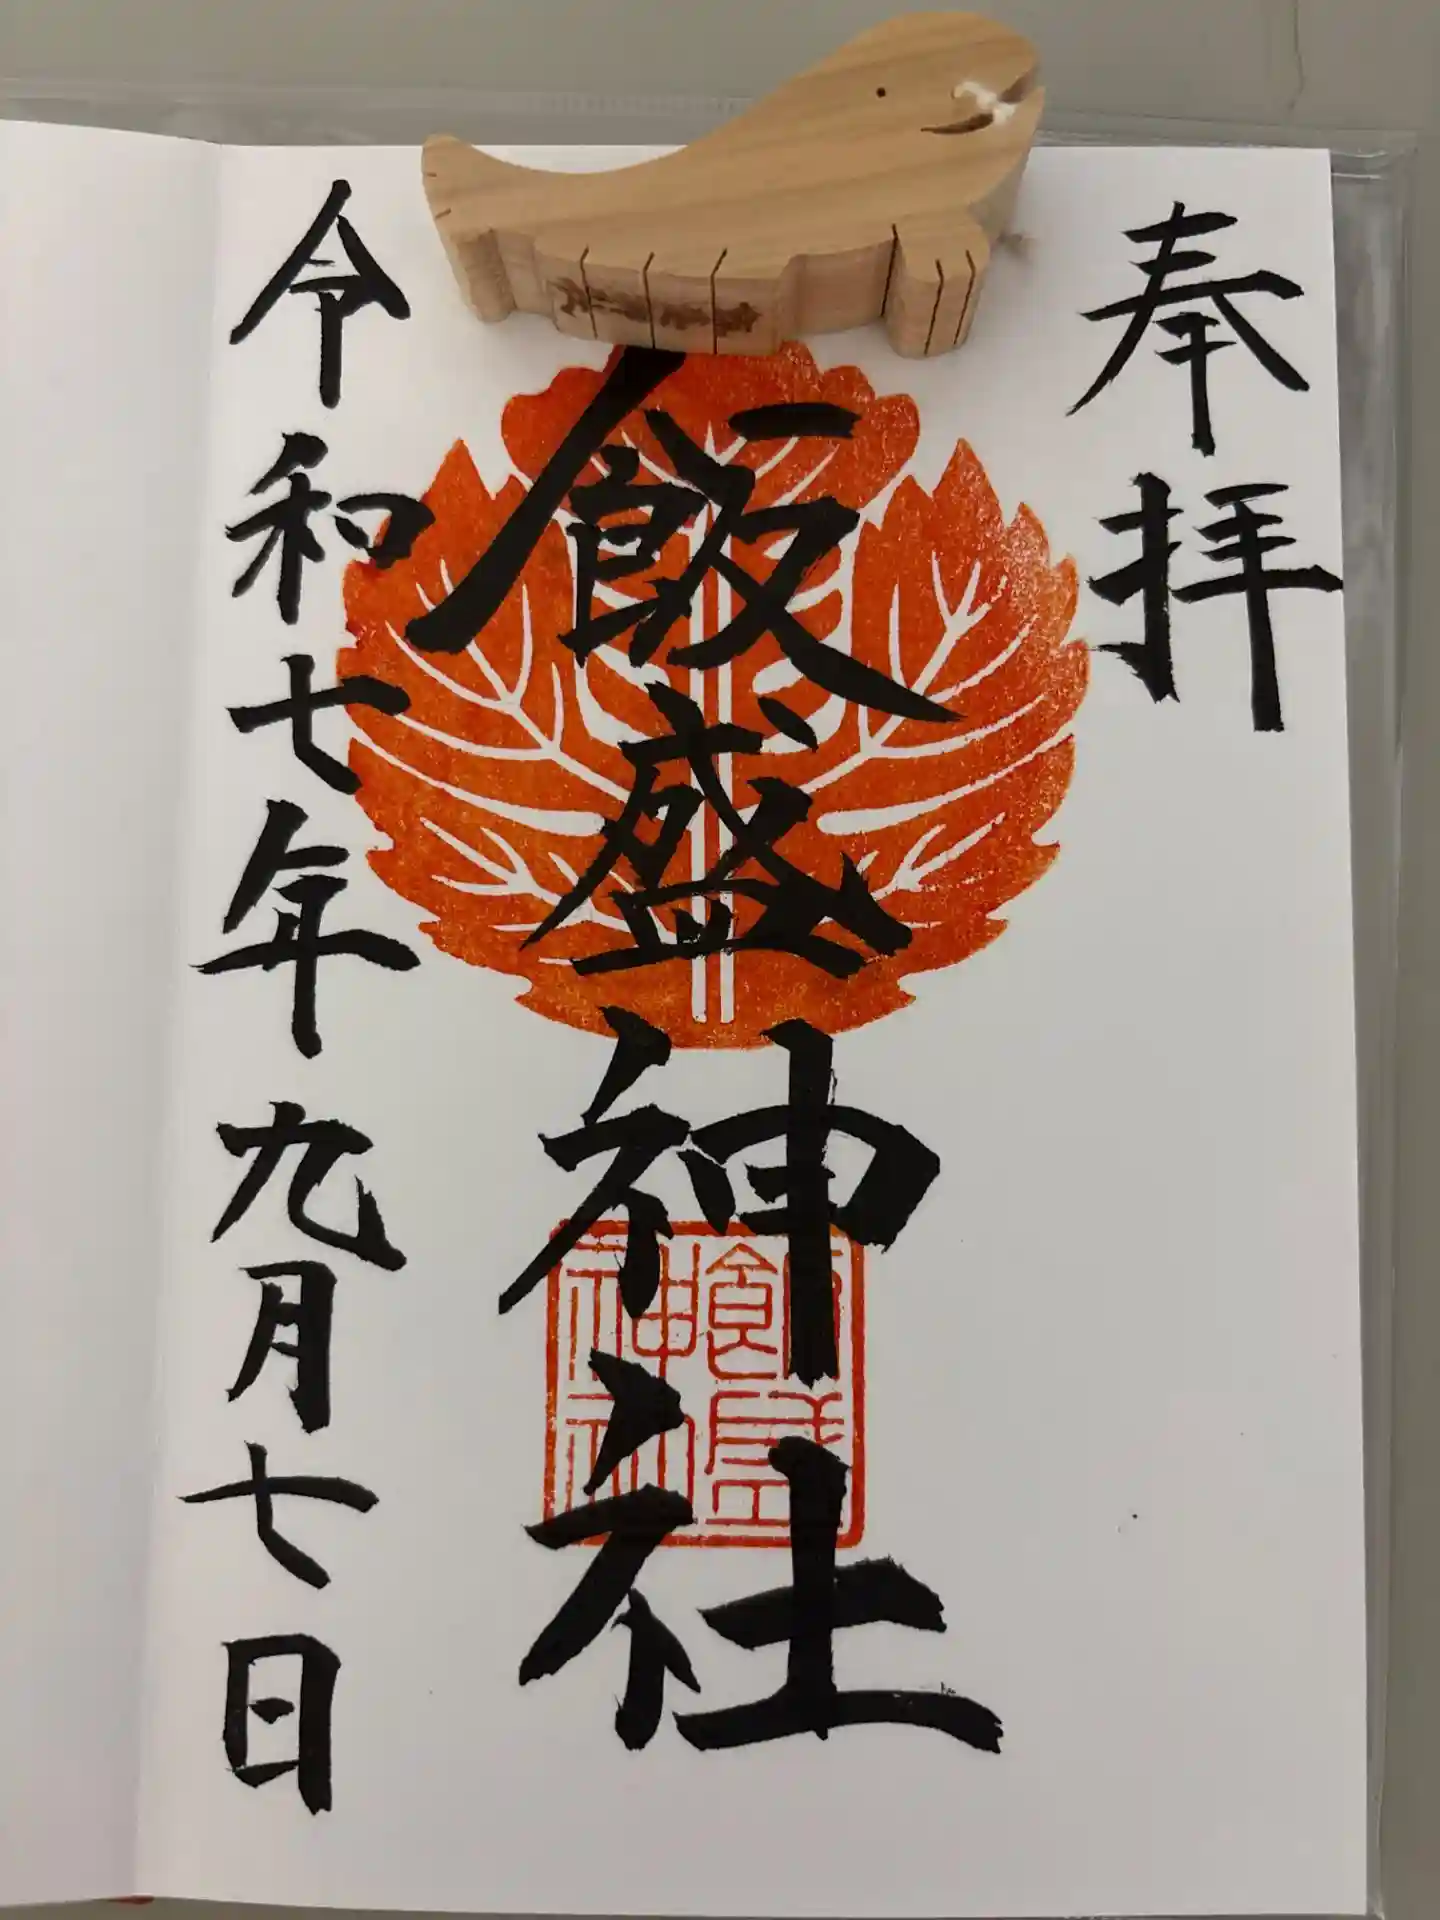 奉拝
飯盛神社
令和七年九月七日
飯盛
神社